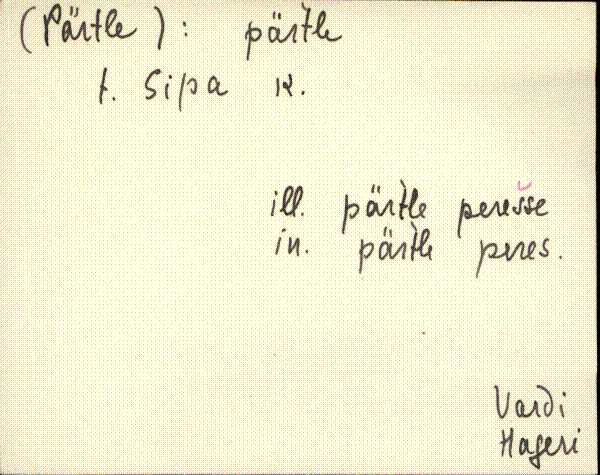 (Pärtle): pär̀tle
t. Sipa k.
ill. pär̀tle peres̆se
in. pär̀tle peres.
Vardi
Hageri